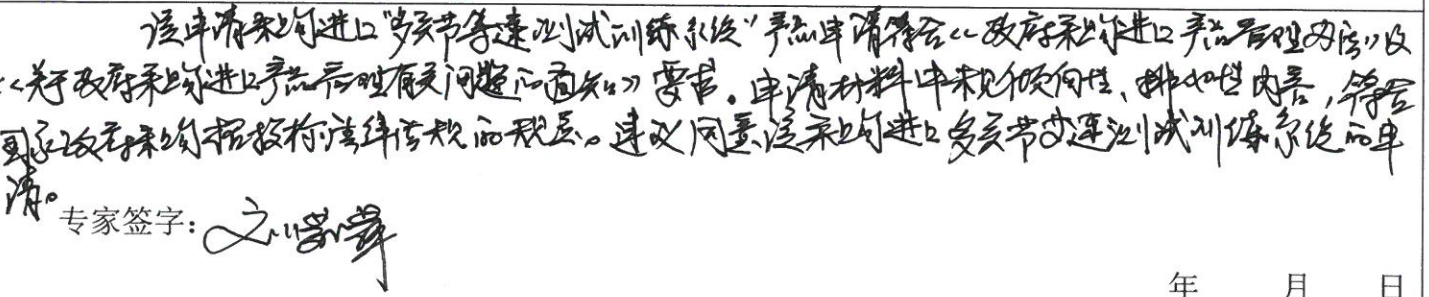 该申请采购进口“多关节等速测试训练系统”产品申请符合<<政府采购进口产品管理办法>>及
<<关于政府采购进口产品管理有关问题的通知>>要求。申请材料中未见倾向性、排他性内容,符合
国家政府采购招投标法律法规的规定。建议同意该采购进口多关节等速测试训练系统的申
请。
专家签字:刘
年 月 日